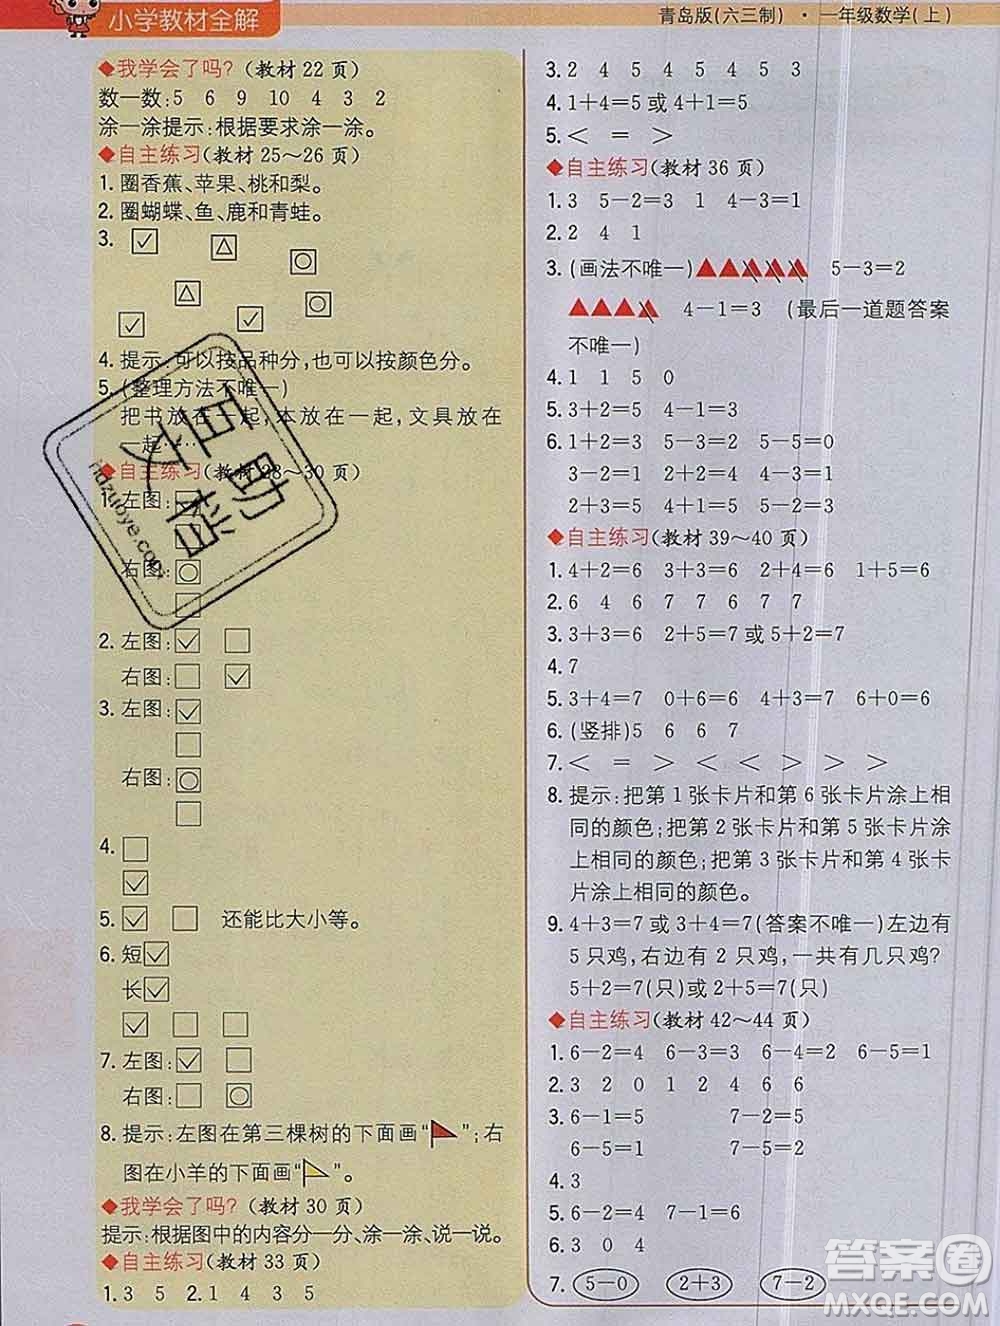 小学教材全解
青岛版(六三制)·一年级数学(上)
◆我学会了吗?(教材22页)
数一数:5 6 9 10 4 3 2
涂一涂提示:根据要求涂一涂。
◆自主练习(教材25～26页)
1. 圈香蕉、苹果、桃和梨。
2. 圈蝴蝶、鱼、鹿和青蛙。
3. ☑ △ ○
△ ○
✓ ✓
4. 提示:可以按品种分,也可以按颜色分。
5. (整理方法不唯一)
把书放在一起,本放在一起,文具放在
一起……
◆自主练习(教材28～30页)
1. 左图:☑
□
右图:○
□
2. 左图:☑ □
右图:□ ☑
3. 左图:☑
□
右图:○
□
4. □
☑
5. ☑ □ 还能比大小等。
6. 短☑
长☑
☑ □ □
7. 左图:☑ □
右图:□ ○
8. 提示:左图在第三棵树的下面画“ ”;右
图在小羊的下面画“ ”。
◆我学会了吗?(教材30页)
提示:根据图中的内容分一分、涂一涂、说一说。
◆自主练习(教材33页)
1. 3 5 2. 1 4 3 5
3. 2 4 5 4 5 4 5 3
4. 1+4=5 或 4+1=5
5. < = >
◆自主练习(教材36页)
1. 3 5－2=3 1 4－3=1
2. 2 4 1
3. (画法不唯一)▲▲▲▲▲ 5－3=2
▲▲▲▲ 4－1=3 (最后一道题答案
不唯一)
4. 1 1 5 0
5. 3+2=5 4－1=3
6. 1+2=3 5－3=2 5－5=0
3－2=1 2+2=4 4－3=1
2+3=5 4+1=5 5－2=3
◆自主练习(教材39～40页)
1. 4+2=6 3+3=6 2+4=6 1+5=6
2. 6 4 6 7 7 6 7 7
3. 3+3=6 2+5=7 或 5+2=7
4. 7
5. 3+4=7 0+6=6 4+3=7 6+0=6
6. (竖排)5 6 6 7
7. < = > < < > > >
8. 提示:把第1张卡片和第6张卡片涂上相
同的颜色;把第2张卡片和第5张卡片涂
上相同的颜色;把第3张卡片和第4张卡
片涂上相同的颜色。
9. 4+3=7 或 3+4=7(答案不唯一)左边有
5只鸡,右边有2只鸡,一共有几只鸡?
5+2=7(只)或 2+5=7(只)
◆自主练习(教材42～44页)
1. 6－2=4 6－3=3 6－4=2 6－5=1
2. 3 2 0 1 2 4 6 6
3. 6－1=5 7－2=5
6－5=1 7－5=2
4. 3
5. 6－2=4 7－1=6
6. 3 0 4
7. 5－0 2+3 7－2
百助文档
ndzuoye.com
答案圈
MXQE.COM